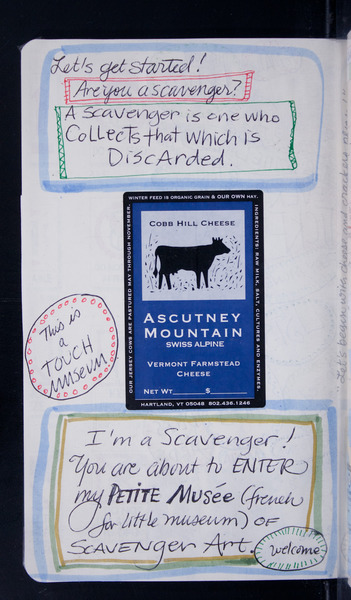 Let's get started!
Are you a scavenger?
A Scavenger is one who
Collects that which is
Discarded.
WINTER FEED IS ORGANIC GRAIN & OUR OWN HAY.
OUR JERSEY COWS ARE PASTURED MAY THROUGH NOVEMBER.
INGREDIENTS: RAW MILK, SALT, CULTURES AND ENZYMES.
COBB HILL CHEESE
ASCUTNEY
MOUNTAIN
SWISS ALPINE
VERMONT FARMSTEAD
CHEESE
NET WT______ $______
HARTLAND, VT 05048 802.436.1246
This is
a
TOUCH
Museum
I'm a Scavenger!
You are about to ENTER
my PETITE MUSÉE (french
for little museum) OF
SCAVENGER Art.
welcome
"Let's begin with cheese and crackers